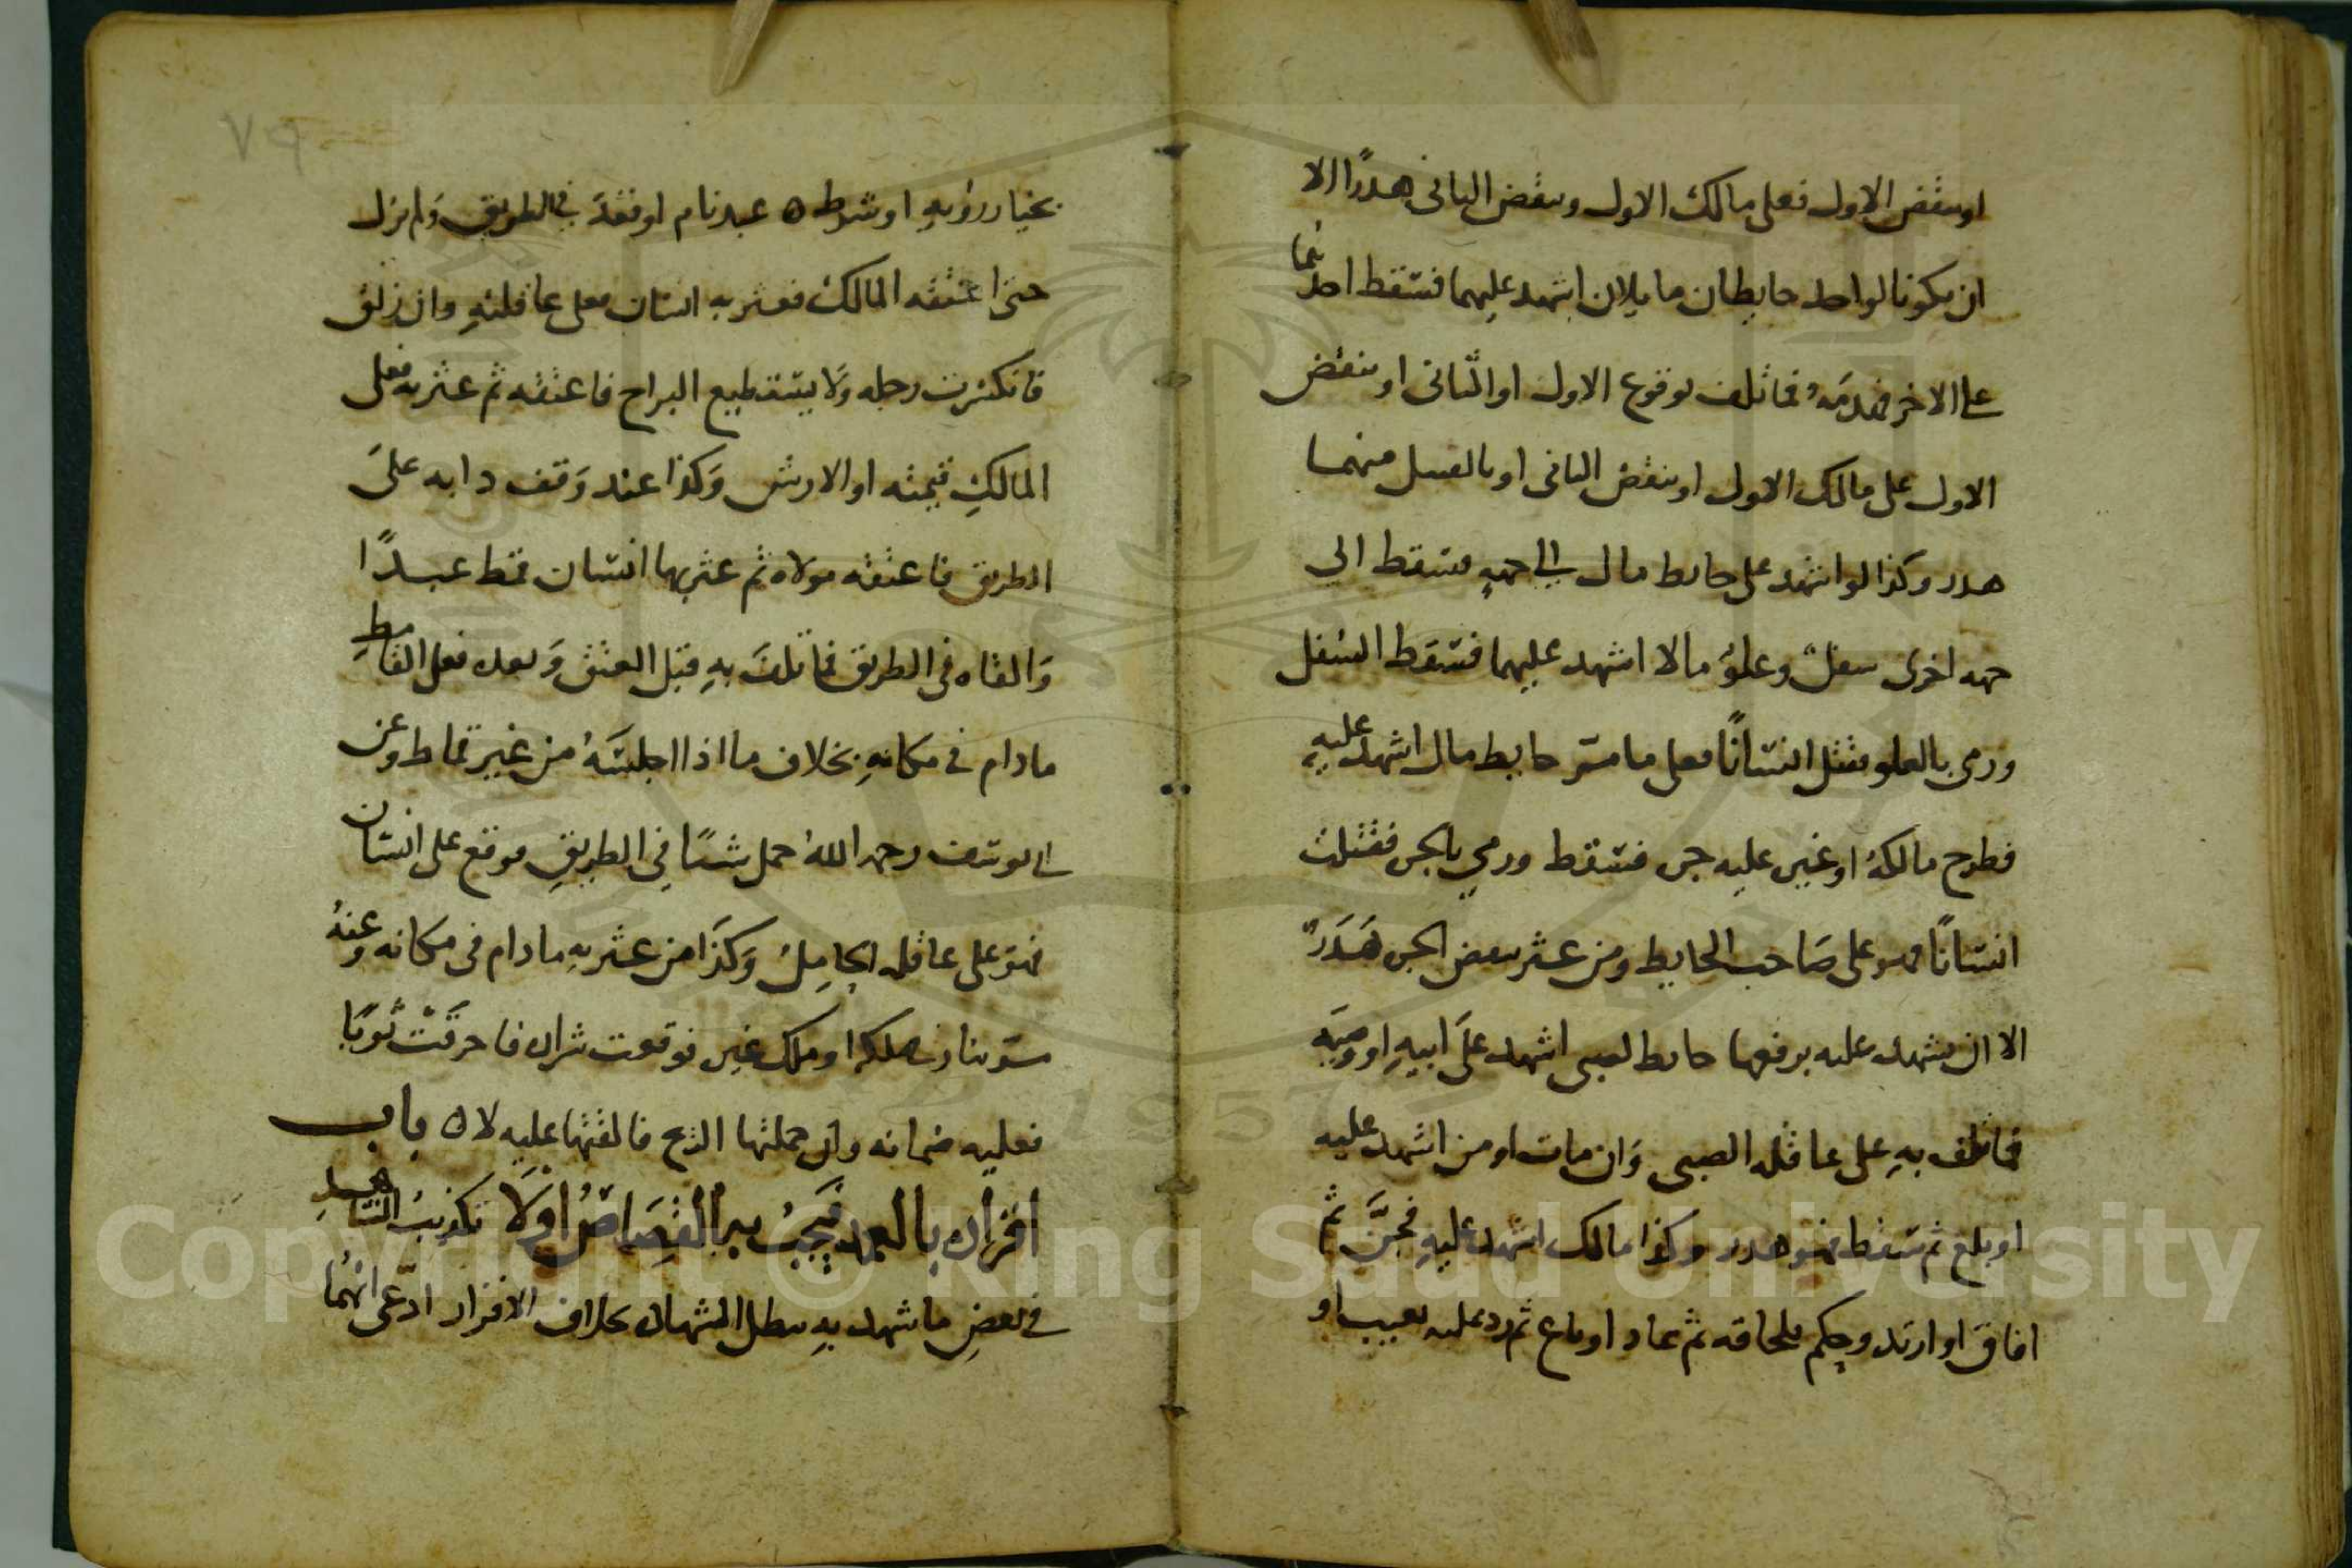 او بنقض الاول فعلى مالك الاول وبنقض الثانى هدرًا الا
ان يكونا لواحد حايطان مايلان اشهد عليهما فسقط احدهما
على الاخر فهدمه فما تلف بوقوع الاول او الثانى او بنقض
الاول على مالك الاول او بنقض الثانى او بالفعل منهما
هدر وكذا لو اشهد على حايط مال الى جهةٍ فسقط الى
جهه اخرى سفلٌ وعلوٌ مالا اشهد عليهما فسقط السفل
ورمى بالعلو فقتل انسانًا فعلى حايط مال اشهد عليه
فطرح مالكهُ او غيره عليه جره فسقط ورمي بالجره فقتلت
انسانًا فهو على صاحب الحايط ومن عثر ببعض الجره هَدَرٌ
الا ان يشهد عليه برفعها حايط لصبى اشهد على ابيهِ او وصيّه
فما تلف بهِ على عاقله الصبى وان مات او من اشهد عليه
او بلغ ثم سقط فهو هدر وكذا مالك اشهد عليهِ فجنَّ ثم
افاق او ارتد وحكم بلحاقه ثم عاد او باع ثم رد عليه بعيب او
٧٩
بخيار رؤيهٍ او شرط ٥ عبد نام او قعد في الطريق ولم يزل
حتى اعتقه المالك فعثر به انسان فعلى عاقلتهِ وان زلق
فانكسرت رجله ولا يستطيع البراح فاعتقه ثم عثر به فعلى
المالكِ قيمته او الارش وكذا عند وقف دابه على
الطريق فاعتقه مولاه ثم عثر بها انسان قمط عبدًا
والقاه فى الطريق فما تلف بهِ قبل العتق وبعده فعلى القامطِ
مادام في مكانهِ بخلاف ما اذا اجلسَهُ من غير قماط وعن
ابى يوسف رحمه اللهُ حمل شيئًا فِى الطريقِ فوقع على انسان
فهو على عاقله الحامِلُ وكذا من عثر بهِ مادام فى مكانه وعنهُ
مر بنار فى ملكه او ملك غيره فوقعت شراره فاحرقت ثوبًا
فعليهِ ضمانه وان حملتها الريح فالقتها عليه لا ٥ باب
اقراره بالعمد فيجبُ بهِ القِصَاصُ اوْلَا تكذيبُ الشاهدِ
في بعضِ ما شهد بهِ يبطل الشهاده بخلاف الاقرار ادّعى انهُما